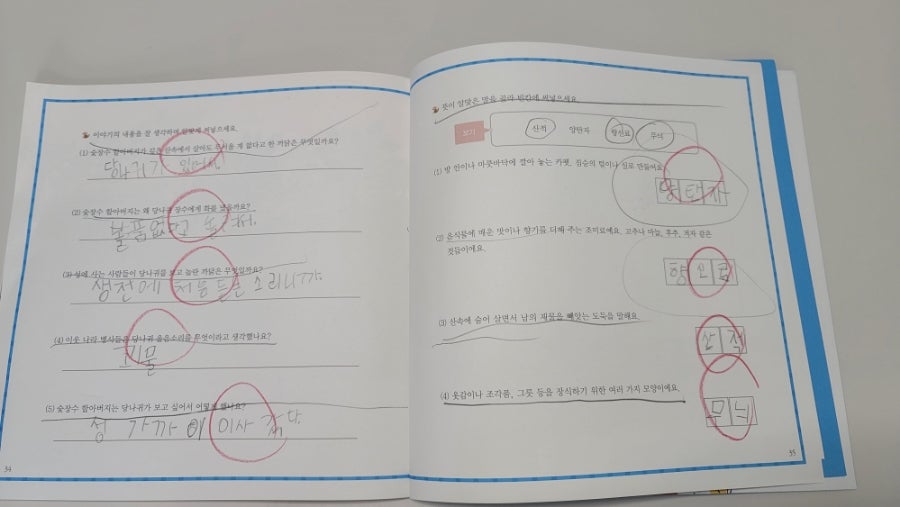 이야기의 내용을 잘 생각하며 알맞게 써넣으세요.
(1) 숯장수 할아버지가 깊은 산속에서 살아도 무서울 게 없다고 한 까닭은 무엇일까요?
당나귀가 있어서
(2) 숯장수 할아버지는 왜 당나귀 장수에게 화를 냈을까요?
볼품없다고
(3) 성에 사는 사람들이 당나귀를 보고 놀란 까닭은 무엇일까요?
생전에 처음 듣는 소리니까
(4) 이웃 나라 병사들은 당나귀 울음소리를 무엇이라고 생각했나요?
괴물
(5) 숯장수 할아버지는 당나귀가 보고 싶어서 어떻게 했나요?
성 가까이 이사 갔다.
34
뜻이 알맞은 말을 골라 빈칸에 써넣으세요.
보기
산적 양탄자 향신료 무늬
(1) 방 안이나 마룻바닥에 깔아 놓는 카펫. 짐승의 털이나 실로 만들어요.
양탄자
(2) 음식물에 매운 맛이나 향기를 더해 주는 조미료예요. 고추나 마늘, 후추, 겨자 같은
것들이에요.
향신료
(3) 산속에 숨어 살면서 남의 재물을 빼앗는 도둑을 말해요.
산적
(4) 옷감이나 조각품, 그릇 등을 장식하기 위한 여러 가지 모양이에요.
무늬
35